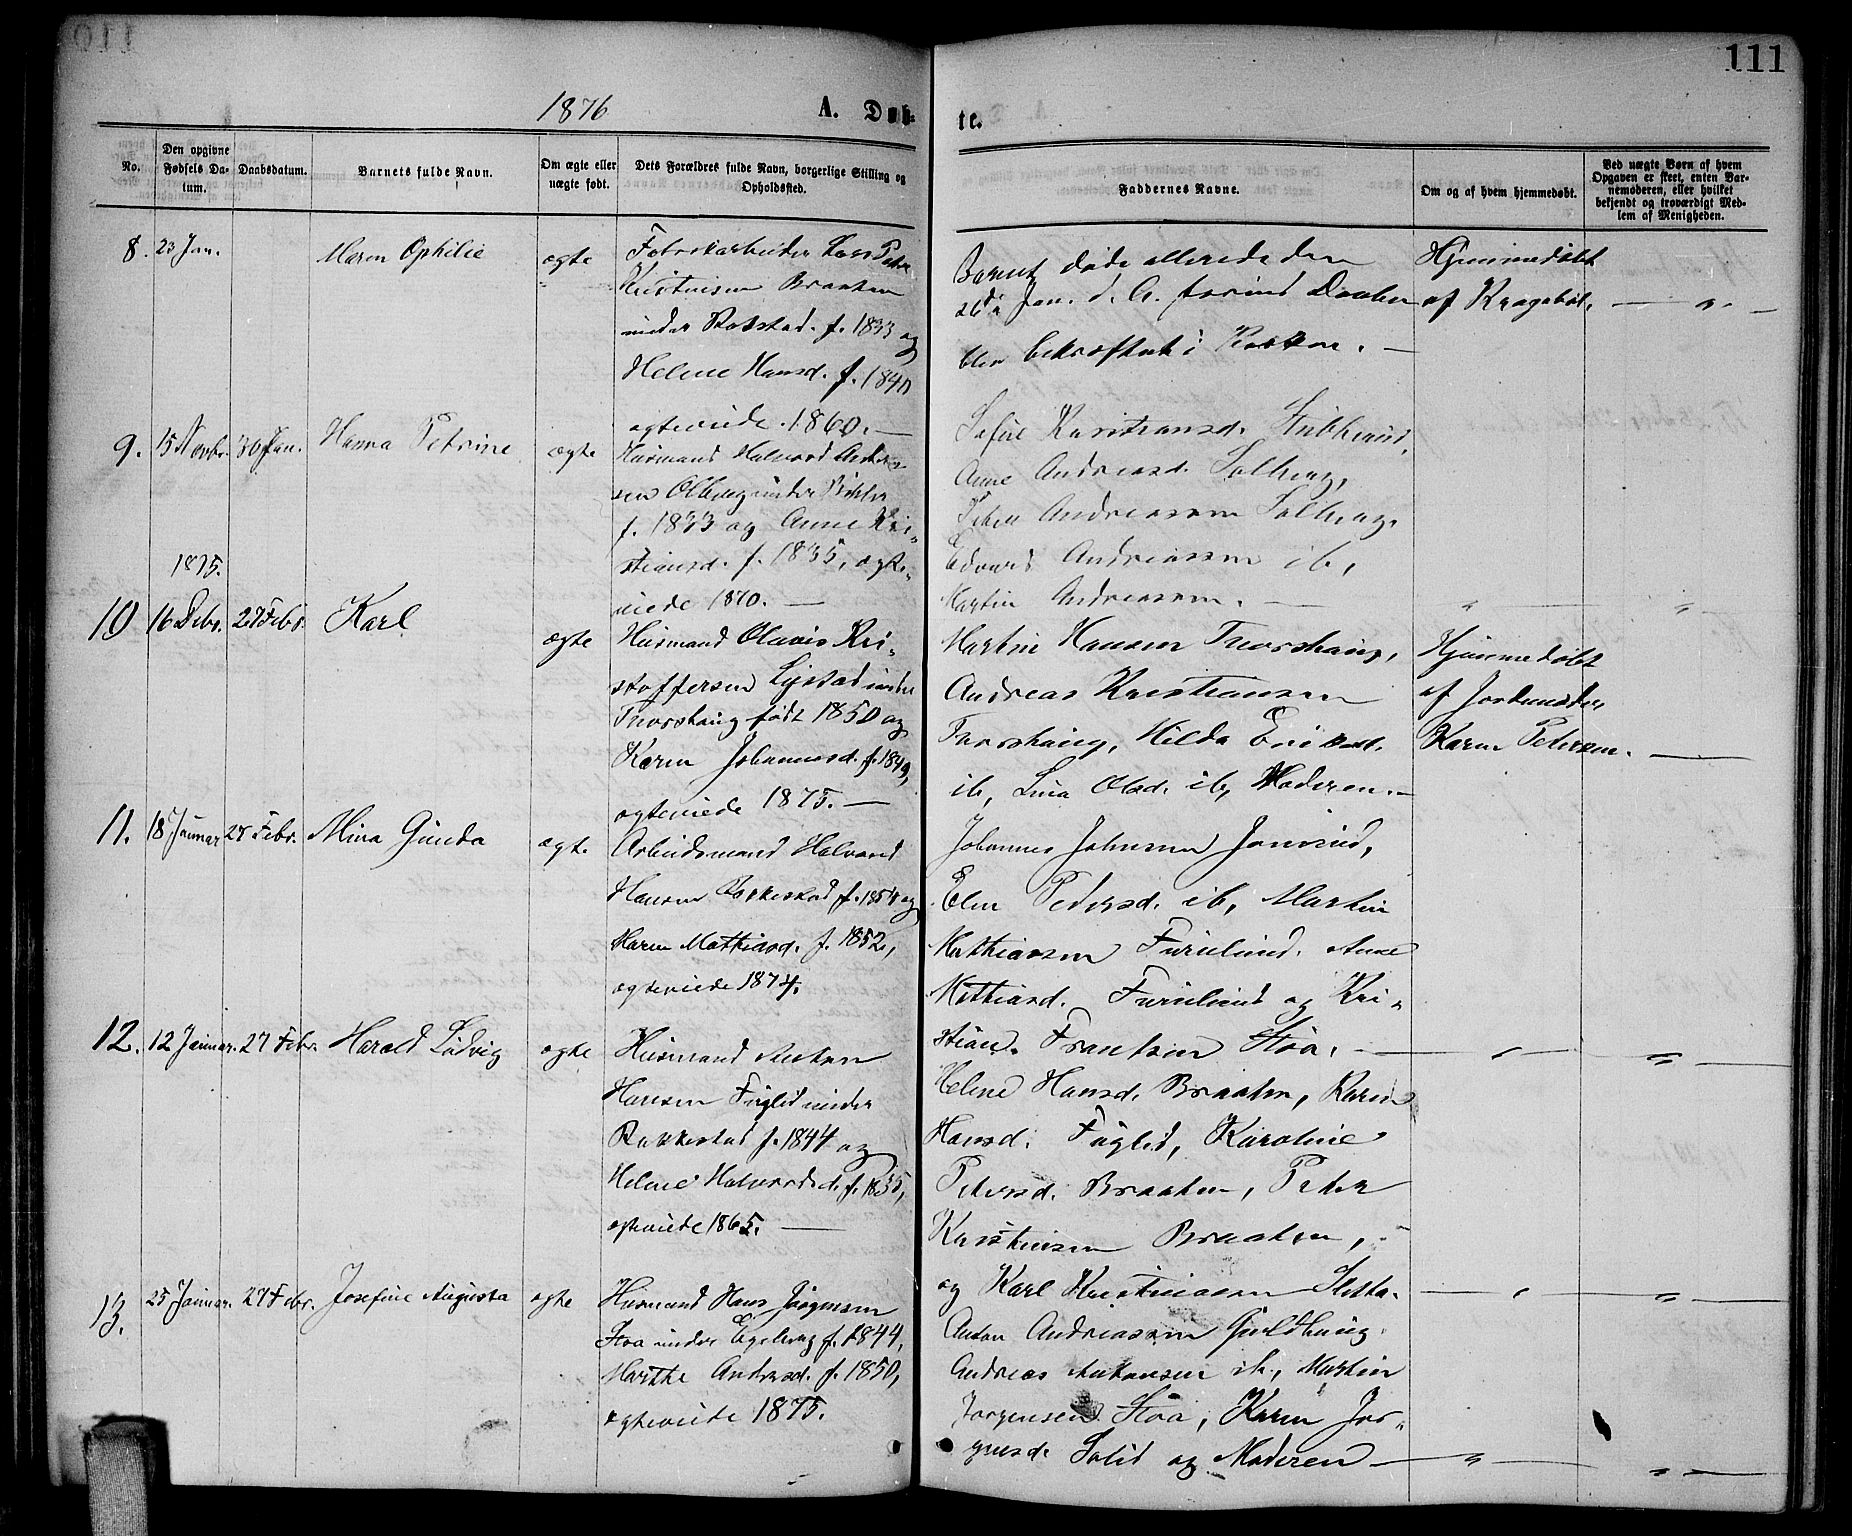 111
1876 A. Døb- te.
No. Den opgivne Fødsels Da- tum. Daabsdatum. Barnets fulde Navn. Om ægte eller uægte født. Dets Forældres fulde Navn, borgerlige Stilling og Opholdssted. Faddernes Navne. Om og af hvem hjemmedøbt. Ved uægte Børn af hvem Opgaven er skeet, enten Bar- nemoderen, eller hvilket bekjendt og troværdigt Med- lem af Menigheden.
8. 23 Jan. Maren Ophilie ægte
Fabrikarbeider Lars Peter
Kristiansen Braaten
under Rakstad. f. 1833 og
Helene Hansd. f. 1840
ægteviede 1860. —
Barnet døde allerede den
26de Jan. d. A. forind Daaben
blev bekræftet i Kirken. —
Hjemmedøbt
af Kragebøl.
9. 15 Novbr. 30 Jan. Hanna Petrine ægte
Husmand Halvord Ander-
sen Olberg under
f. 1833 og Anne Kri-
stiansd. f. 1835, ægte-
viede 1870. —
Sofie Kristiansd. Stubberud,
Anne Andreasd. Solberg,
Peter Andreassen Solberg,
Edvard Andreassen ib,
Martin Andreassen. —
1875.
10 16 Debr. 27 Febr. Karl ægte
Husmand Olavis Kri-
stoffersen Lystad under
Thorshaug født 1850 og
Karen Johannesd. f. 1849,
ægteviede 1875. —
Martin Hansen Thorshaug,
Andreas Kristiansen
Thorshaug, Hilda Eriksd.
ib, Lina Olsd. ib, Moderen. —
Hjemmedøbt
af Jordemoder
Karen Petersen.
11. 18 Januar 27 Febr. Mina Gunda ægte
Arbeidsmand Halvord
Hansen Rakkestad f. 1854 og
Maren Mathiasd. f. 1852,
ægteviede 1874.
Johannes Johnsen Jonsrud,
Elen Pedersd. ib, Martin
Mathiassen Furulund. Anne
Mathiasd. Furulund og Kri-
stian. Frantsen Stoa. —
12. 12 Januar. 27 Febr. Harald Ludvig ægte
Husmand Anton
Hansen Fuglid under
Rakkestad f. 1844 og
Helene Halvordsd. f. 1835,
ægteviede 1865. —
Helene Hansd. Braaten, Karen
Hansd. Fuglid, Karoline
Petersd. Braaten, Peter
Kristiansen Braaten,
og Karl Kristiansen Sletta. —
13. 25 Januar. 27 Febr. Josefine Augusta ægte
Husmand Hans Jørgensen
Stoa under Egeberg f. 1844,
Marthe Andersd. f. 1850,
ægteviede 1875.
Anton Andreassen Guldhaug,
Andreas Antonsen ib., Martin
Jørgensen Stoa, Karen Jør-
gensd. Solid og Moderen —